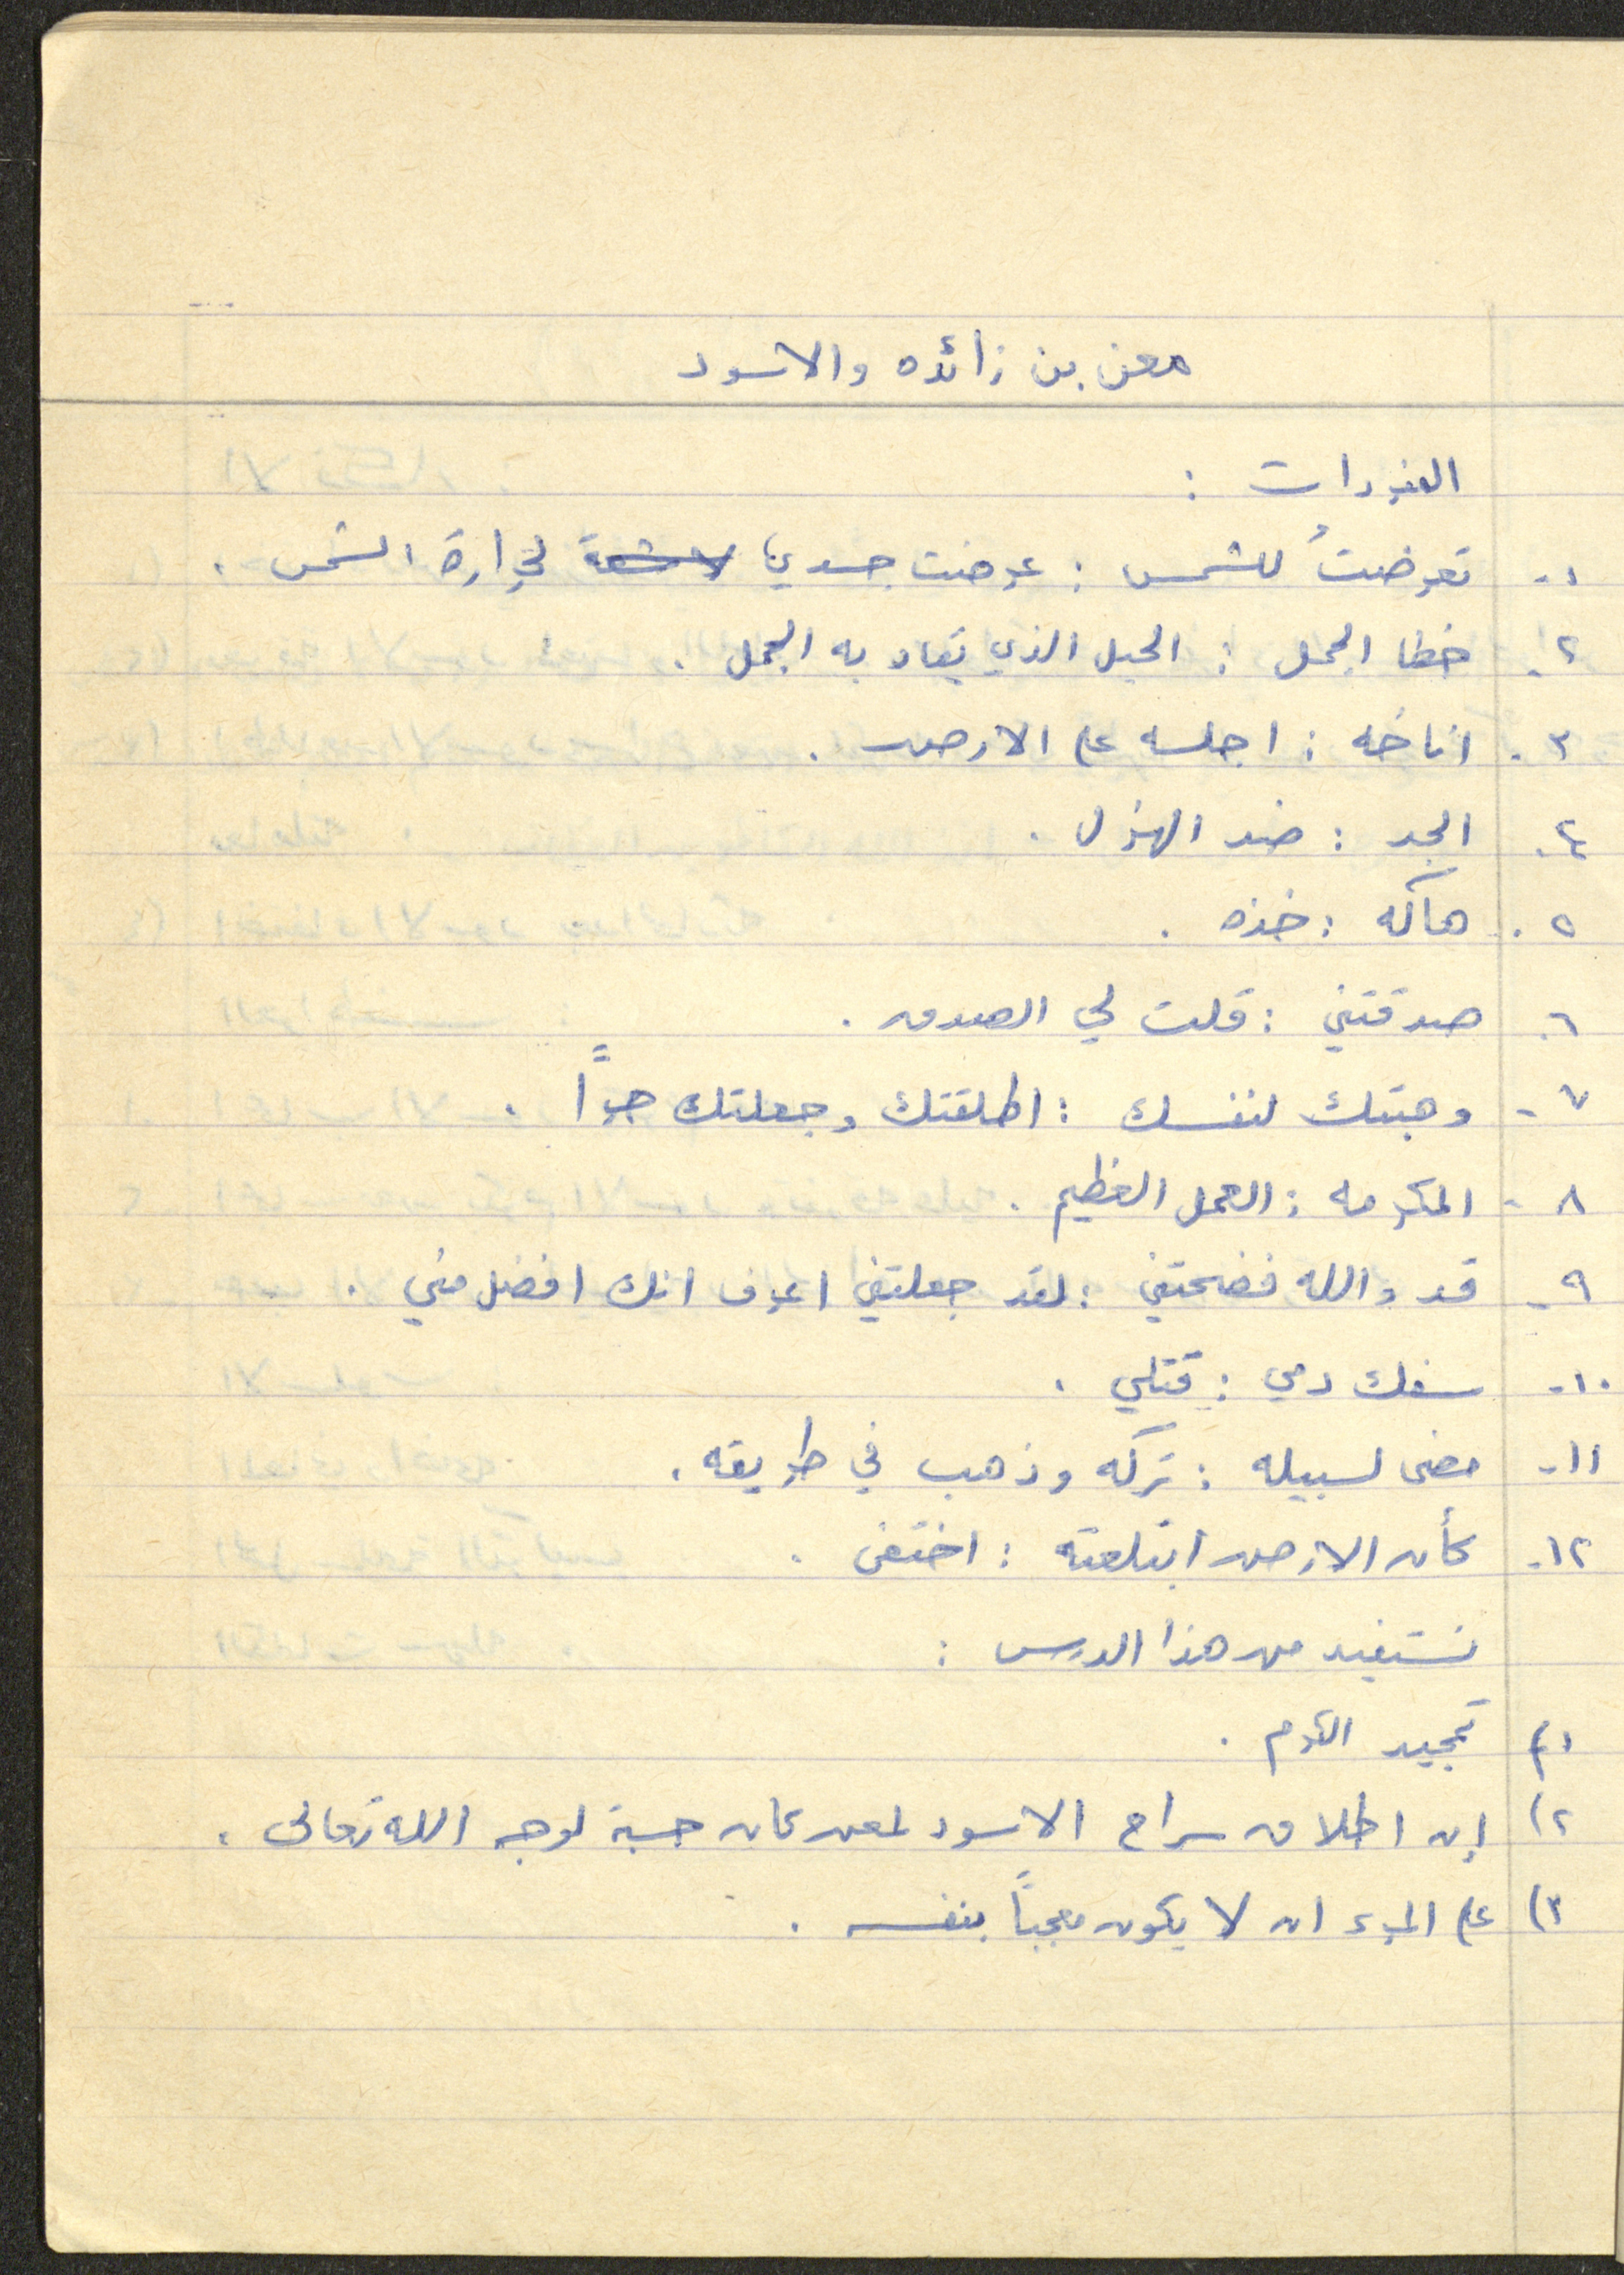 معن بن زائده والاسود
المفردات :
١- تعرضتُ للشمس : عرضت جسدي لاشعة لحرارة الشمس .
٢- خطا الجمل : الحبل الذي تقاد به الجمل .
٣- اناخه : اجلسه على الارض .
٤- الجد : ضد الهزل .
٥- هاكه : خذه .
٦- صدقتني : قلت لي الصدق .
٧- وهبتك لنفسك : اطلقتك وجعلتك حراً .
٨- المكرمه : العمل العظيم .
٩- قد والله فضحتني : لقد جعلتني اعرف انك افضل مني .
١٠- سفك دمي : قتلي .
١١- مضى لسبيله : تركه وذهب في طريقه .
١٢- كأن الارض ابتلعته : اختفى .
نستفيد من هذا الدرس :
١) تمجيد الكرم .
٢) إن اطلاق سراح الاسود لمعن كان حسبة لوجه الله تعالى .
٣) على المرء ان لا يكون معجباً بنفسه .